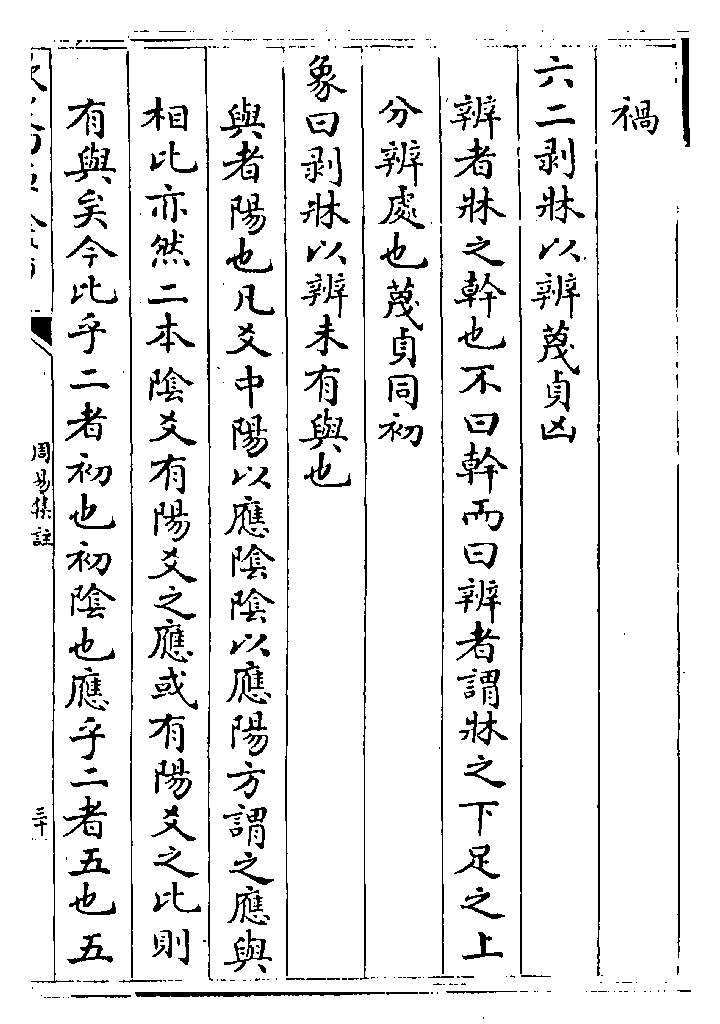 禍
六二剥牀以辨蔑貞凶
辨者牀之幹也不曰幹而曰辨者謂牀之下足之上
分辨處也蔑貞同初
象曰剥牀以辨未有與也
與者陽也凡爻中陽以應陰陰以應陽方謂之應與
相比亦然二本陰爻有陽爻之應或有陽爻之比則
有與矣今比乎二者初也初陰也應乎二者五也五
周易集註
三十